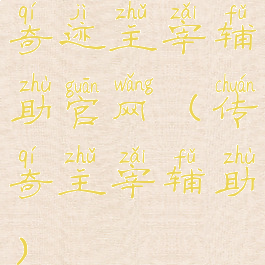 qí jì zhǔ zǎi fǔ
奇迹主宰辅
zhù guān wǎng chuán
助官网（传
qí zhǔ zǎi fǔ zhù
奇主宰辅助
）